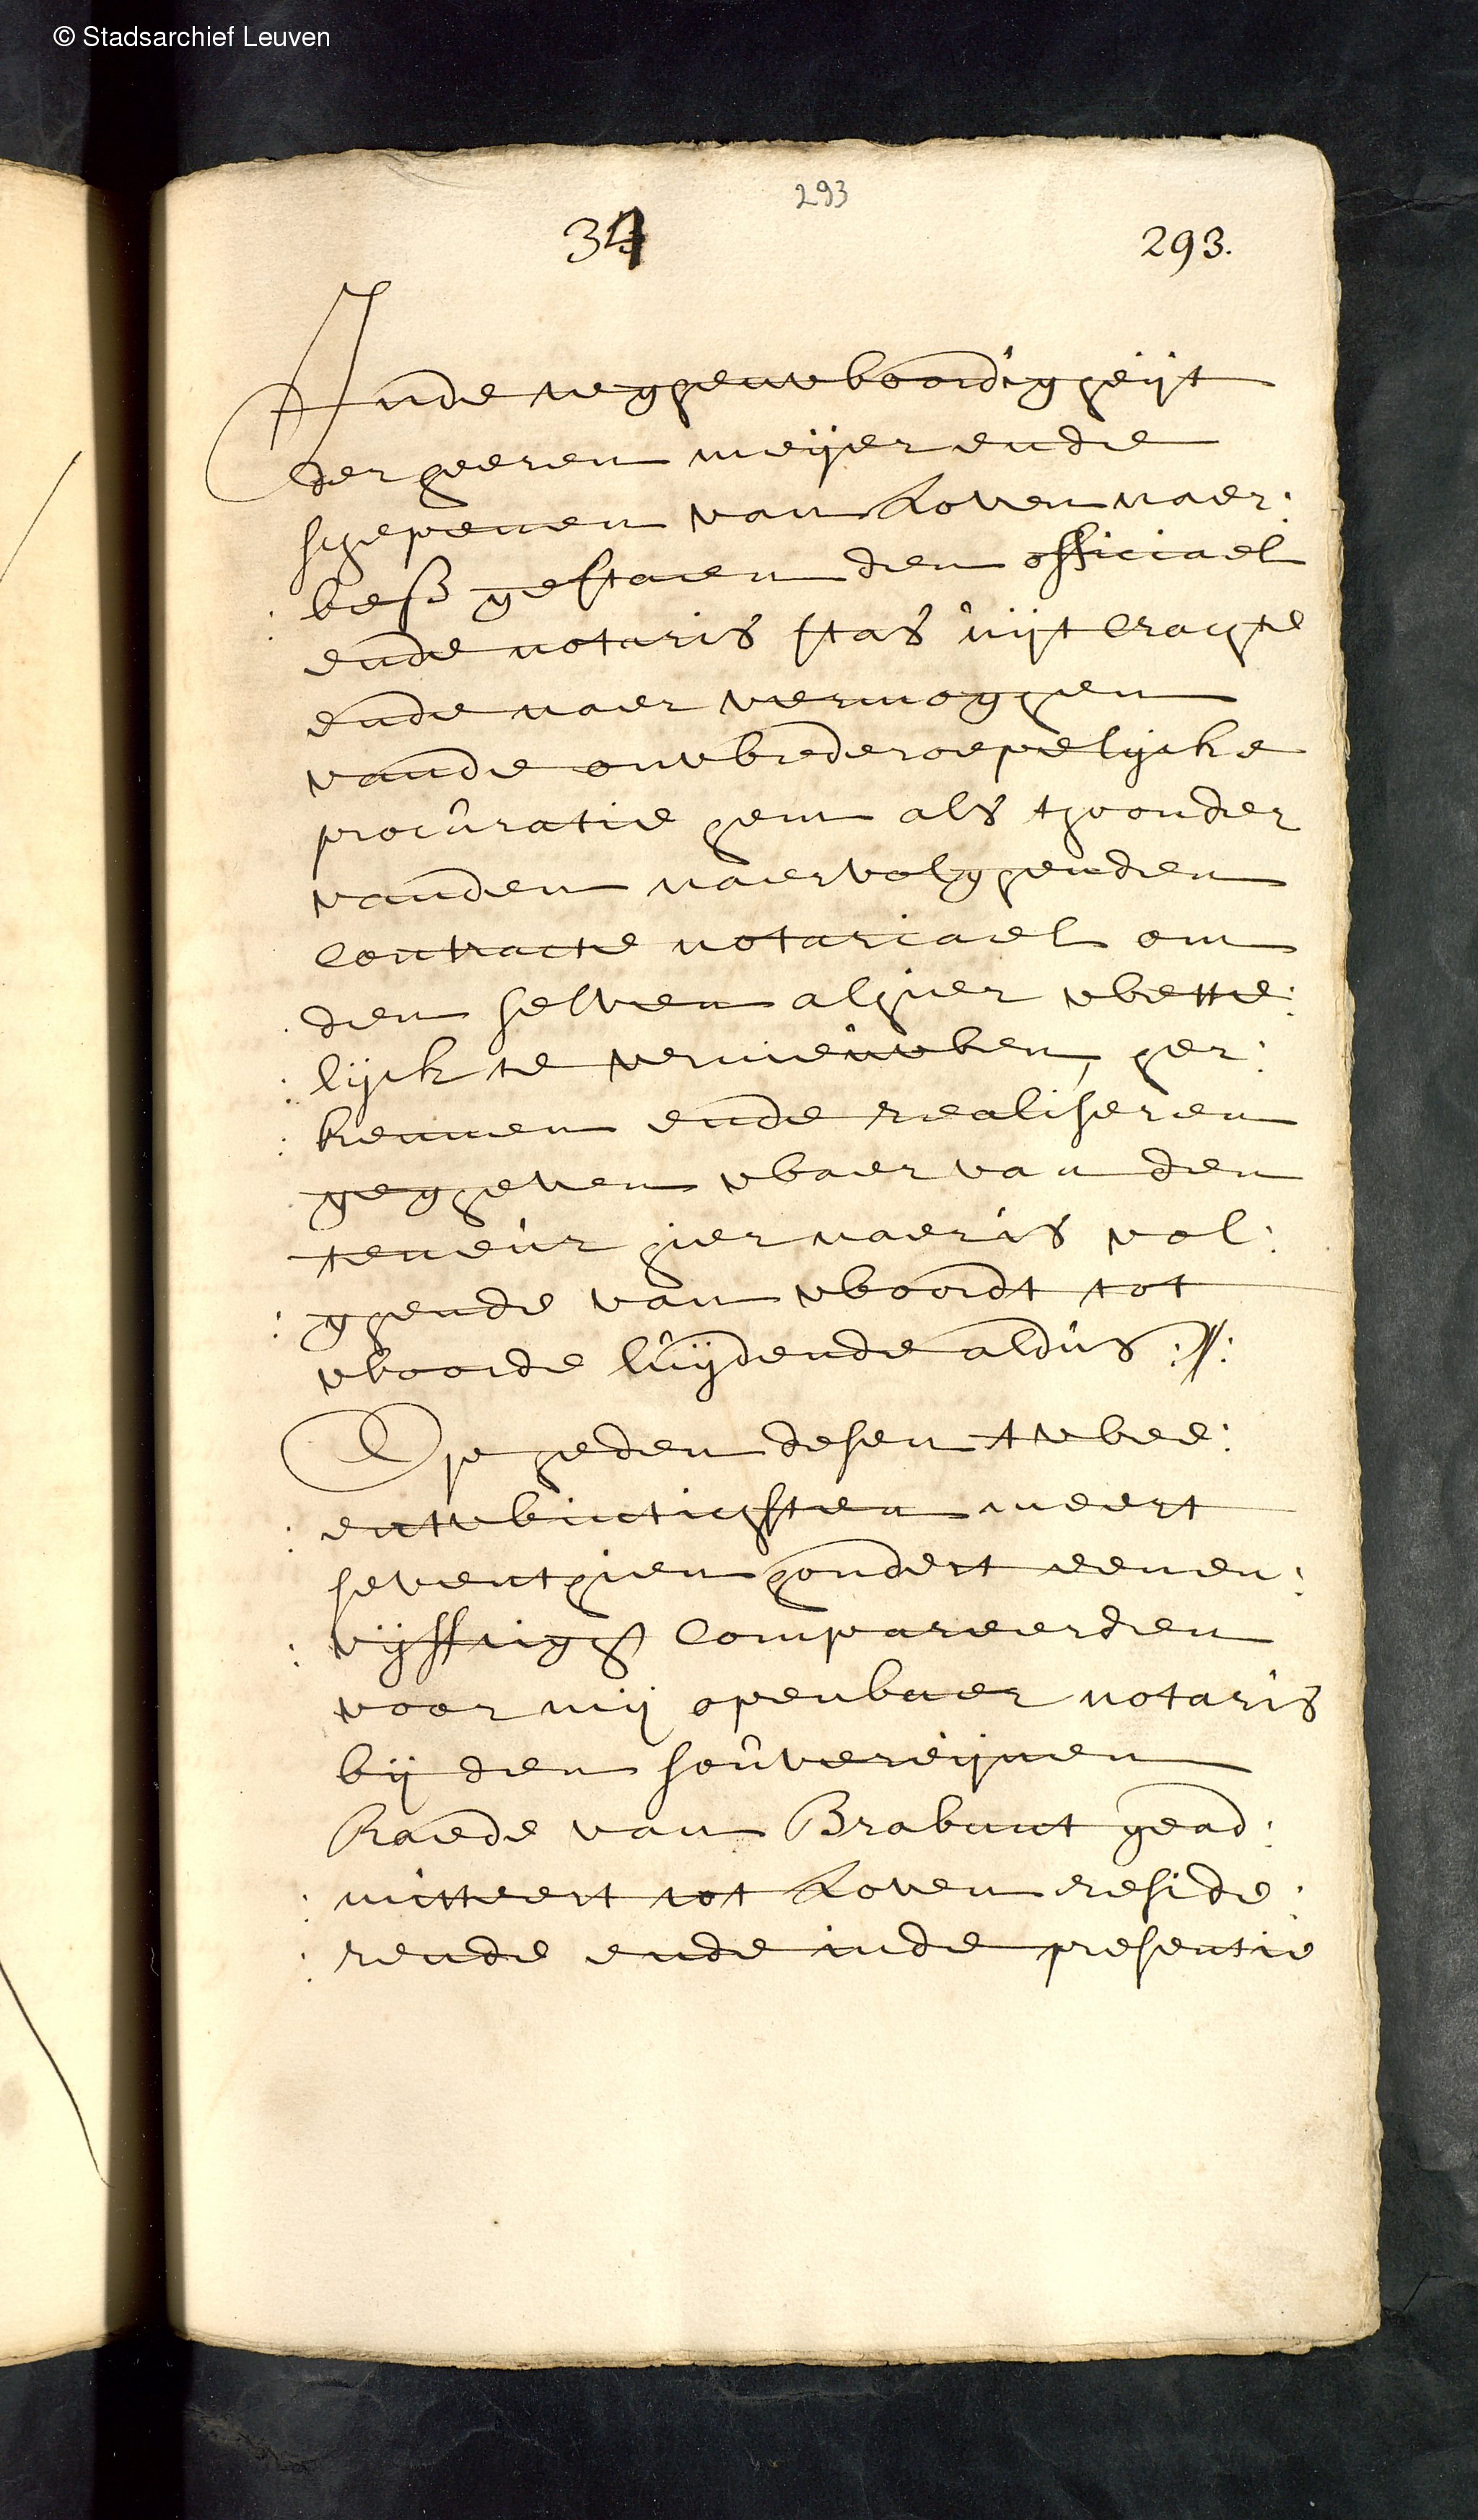 © Stadsarchief Leuven
293
34
293.
Inde teghenwoordigheijt
der heeren meijer ende
schepenen van Loven naer:
: bess gestaen den officiael
ende notaris Stas uijt crachte
ende naer vermoghen
vande onwederoepelijcke
procuratie hem als thoonder
vanden naervolghenden
contracte notariael om
den selven alhier wette:
: lijck te vernieuwen, her:
: kennen ende realiseren
gegheven waer van den
teneur hier naer is vol:
: ghende van woordt tot
woorde luijdende aldus ://:
Op heden desen twee:
: entwintichsten meert
seventhien hondert eenen:
: vijfftigh compareerden
voor mij openbaer notaris
bij den souvereijnen
Raede van Brabant gead:
: mitteert tot Loven reside:
: rende ende inde presentie